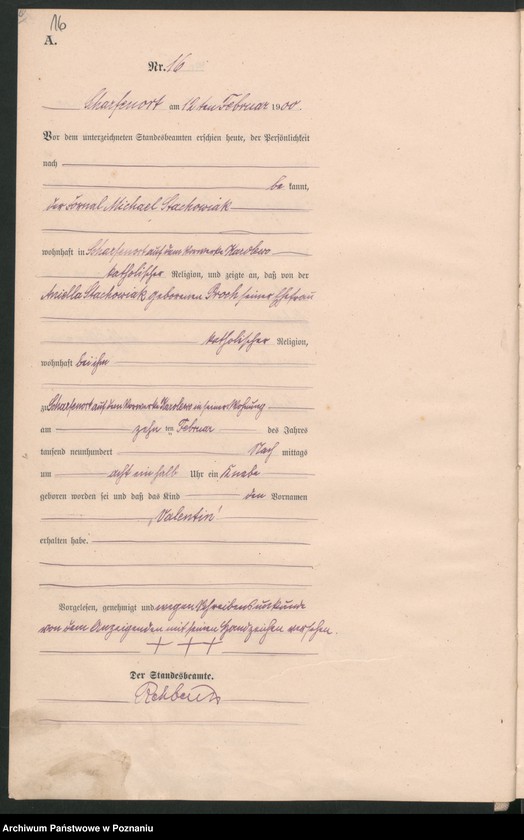 16
A.
Nr. 16
Scharfenort am 12ten Februar 1900.
Vor dem unterzeichneten Standesbeamten erschien heute, der Persönlichkeit
nach
be kannt,
der Fornal Michael Stachowiak
wohnhaft in Scharfenort auf dem Vorwerke Karolewo
katholischer Religion, und zeigte an, daß von der
Aniella Stachowiak geborenen Proch seiner Ehefrau
katholischer Religion,
wohnhaft bei ihm
zu Scharfenort auf dem Vorwerke Karolewo in seiner Wohnung
am zehn ten Februar des Jahres
tausend neunhundert Nach mittags
um acht ein halb Uhr ein Knabe
geboren worden sei und daß das Kind den Vornamen
"Valentin"
erhalten habe.
Vorgelesen, genehmigt und wegen Schreibensunkunde
von dem Anzeigenden mit seinen Handzeichen versehen.
+ + +
Der Standesbeamte.
Archiwum Państwowe w Poznaniu